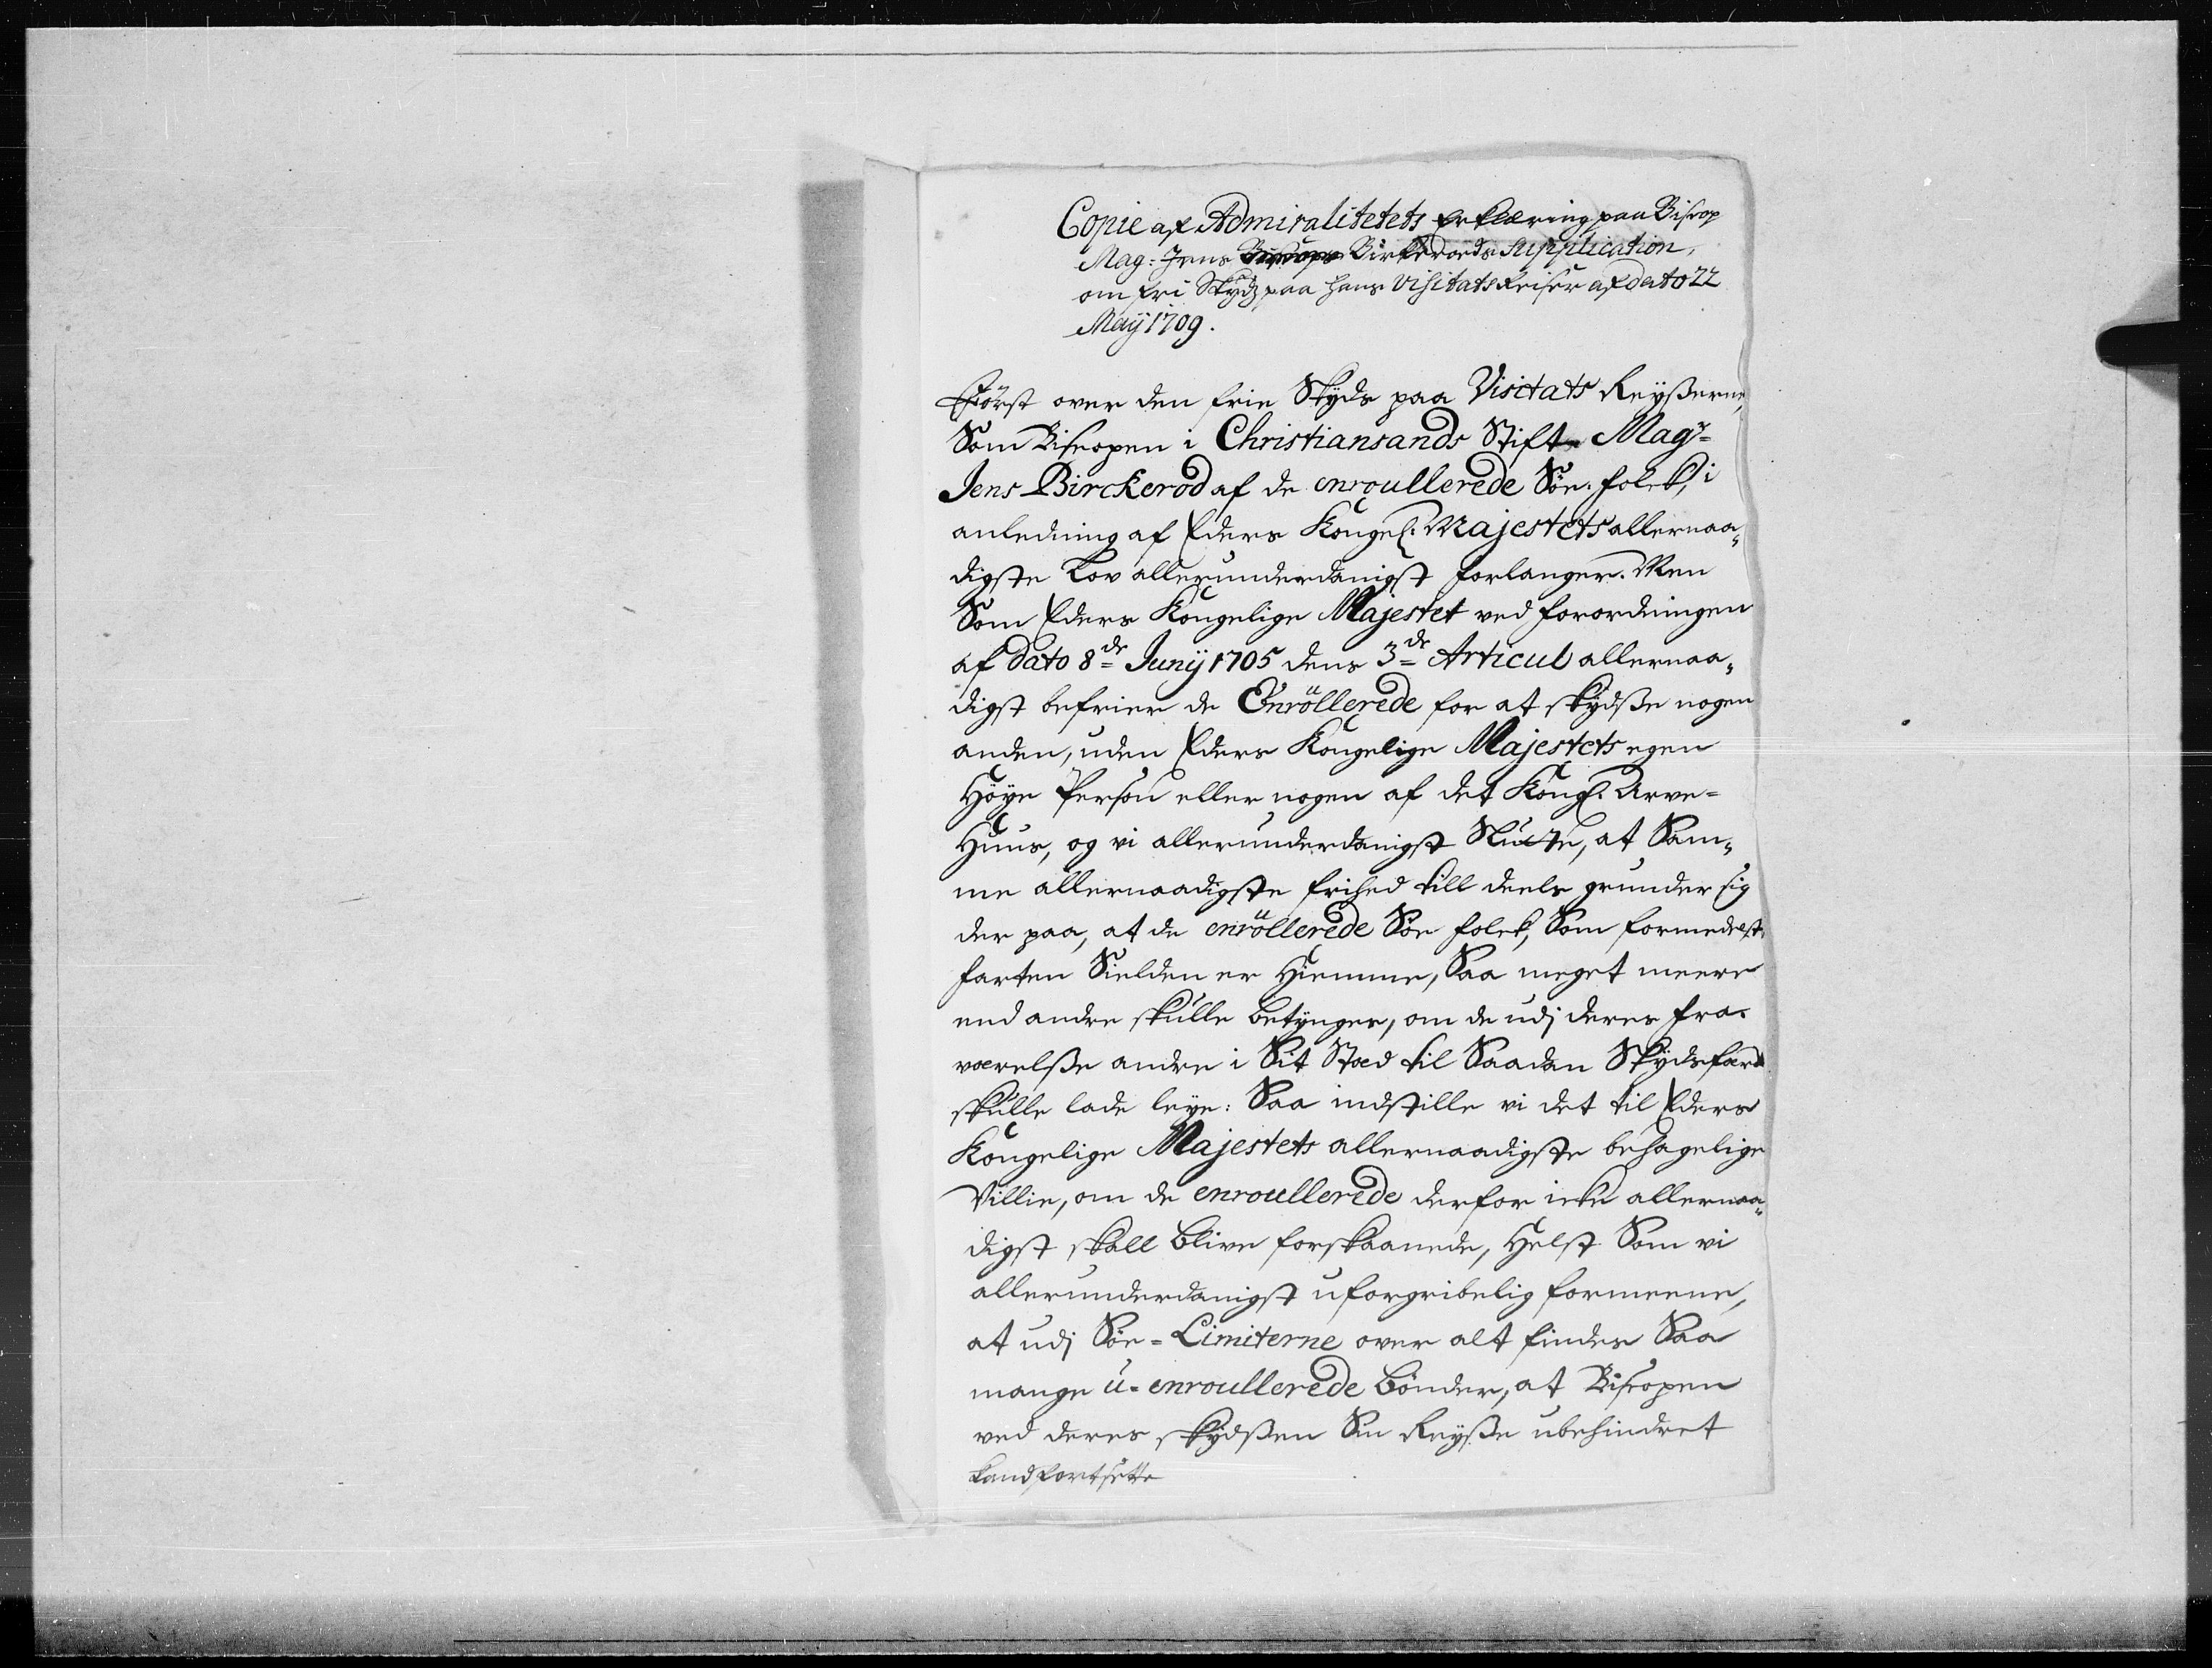 Copie af Admiralitetets Erklæring paa Biscop
Mag: Jens Biscops Birkerods Supplication,
om fri Skydz paa hans Visitats Reiser af dato 22
Maÿ 1709.
Först over den frie Skyds paa Visitats Reÿßerne,
Som Biscopen i Christiansands Stift Magr
Jens Birckerod af de enroullerede Söe-folck, i
anledning af Eders Kongel: Majestets allernaa„
digste Lov allerunderdanigst forlanger. Men
Som Eders Kongelige Majestet ved forordningen
af dato 8de Junÿ 1705 dens 3de Articul allernaa„
digst befrier de Enröllerede for at skÿdße nogen
anden, uden Eders Kongelige Majestets egen
Höÿe Person eller nogen af det Kongl. Arve=
Huus, og vi allerunderdanigst at Sam„
me allernaadigste frihed till deels grunder sig
der paa, at de enröllerede Söe folck, Som formedelst
farten Sielden er Hiemme, Saa meget meere
end andre skulle betÿnges, om de udj deres fra„
værelße andre i Sit Stæd til Saadan Skÿdsfærd
skulle lade leÿe: Saa indstille vi det til Eders
Kongelige Majestets allernaadigste behagelige
Villie, om de enroullerede derfor icke allernaa„
digst skall blive forskaanede, Helst Som vi
allerunderdanigst uforgribelig formeene,
at udj Söe=Limiterne over alt findes Saa
mange u=enroullerede bönder, at Biscopen
ved deres skÿdßen Sin Reÿße ubehindret
kand fortsette